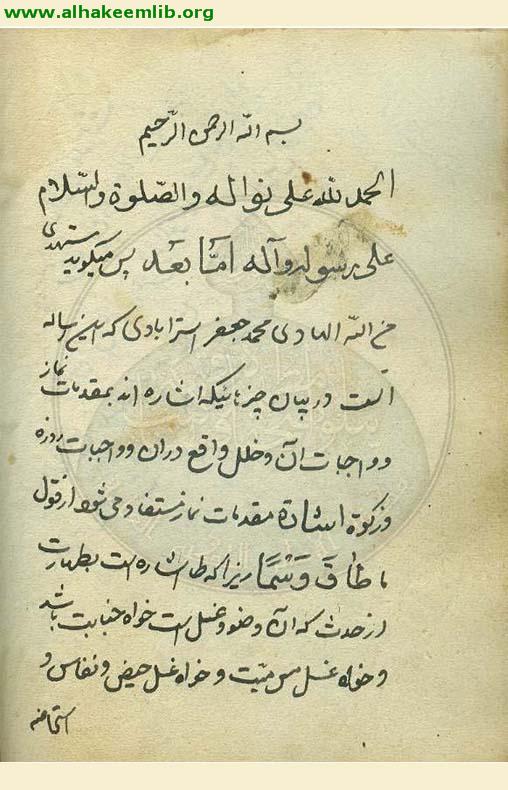 www.alhakeemlib.org
بسم الله الرحمن الرّحيم
الحمد لله على نواله والصّلوة والسّلام
على رسوله وآله امّا بعد پس ميگويد مستهدى
من الله الهادى محمد جعفر استرابادى كه اين رساله
ايست در بيان چيزهائيكه اشاره اند بمقدمات نماز
و واجبات آن و خلل واقع در آن و واجبات روزه
و زكوة اشارة مقدمات نماز مستفاد مى شود از قول
ما طاق وشما زيرا كه طا اشاره است بطهارت
از حدث كه آن وضو و غسل است خواه جنابت باشد
و خواه غسل مس ميّت و خواه غسل حيض و نفاس و
استحاضه